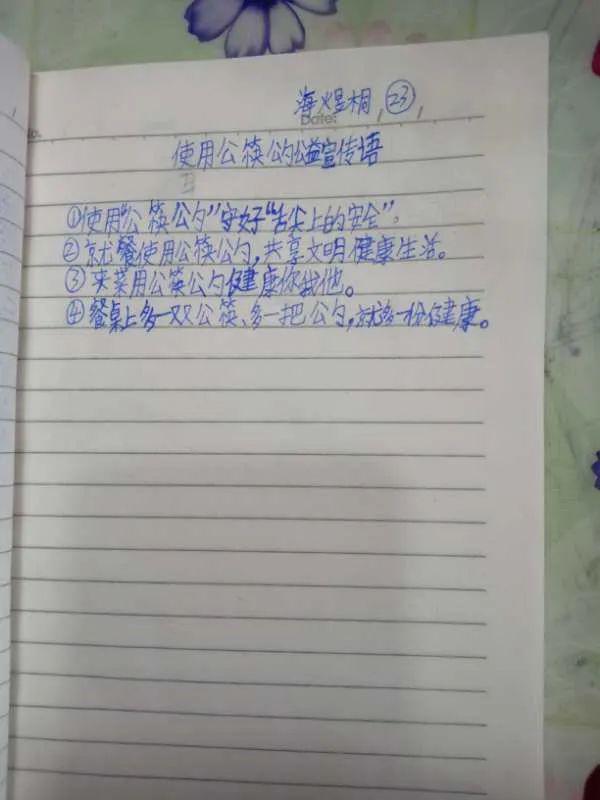 海煜桐 23
No.
Date:
使用公筷公勺公益宣传语
①使用"公筷公勺"守好"舌尖上的安全"。
②就餐使用公筷公勺,共享文明健康生活。
③夹菜用公筷公勺健康你我他。
④餐桌上多一双公筷、多一把公勺,就多一份健康。